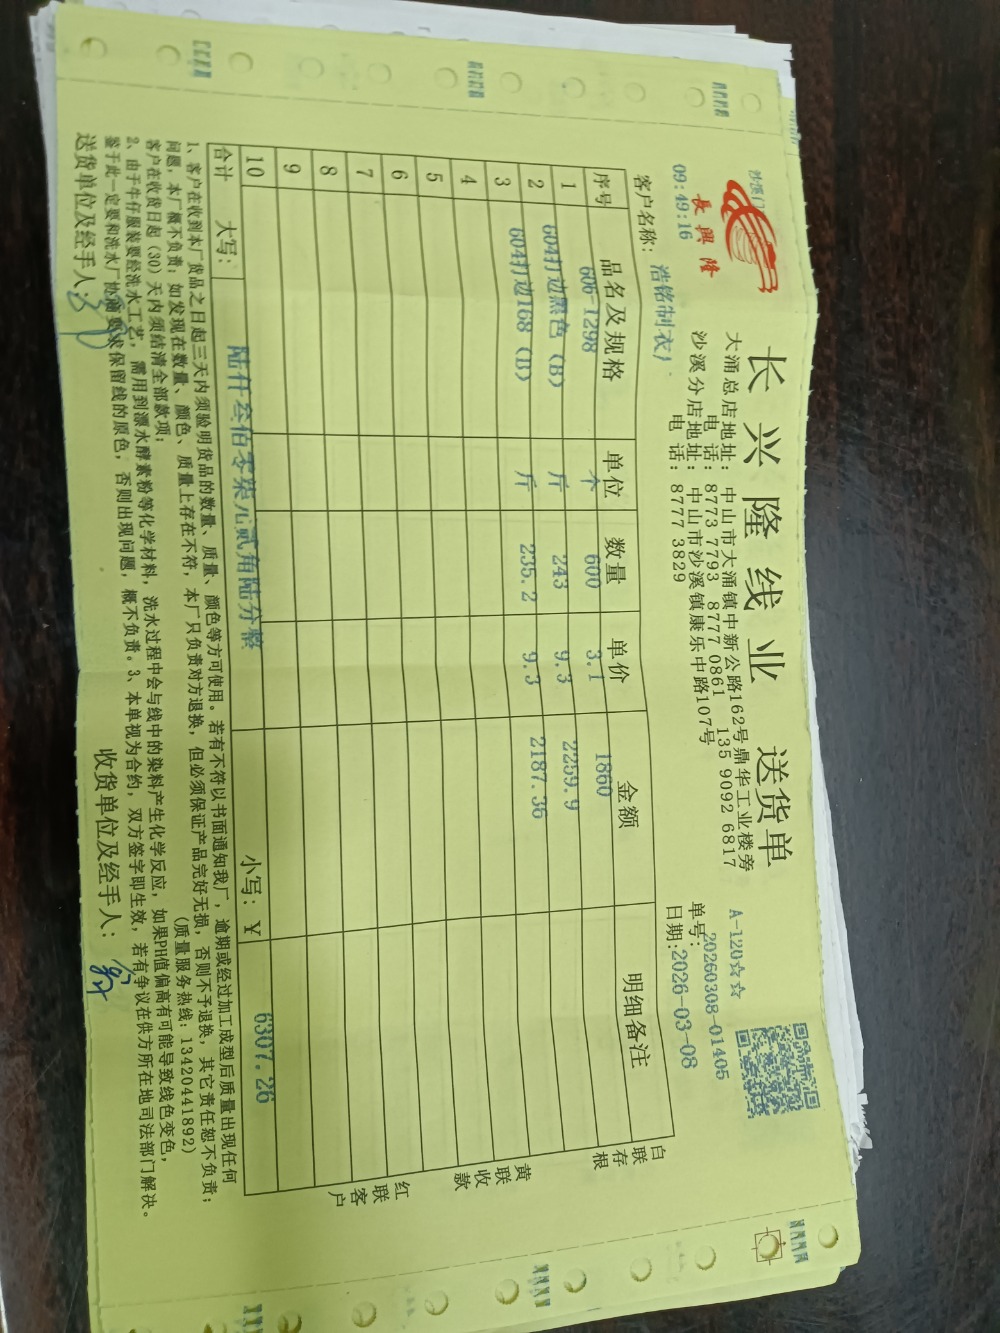 長興隆
长兴隆线业 送货单
A-120☆☆
大涌总店地址: 中山市大涌镇中新公路162号鼎华工业楼旁
电 话: 8773 7793 8777 0861 135 9092 6817
沙溪分店地址: 中山市沙溪镇康乐中路107号
电 话: 8777 3829
沙溪门
09:49:16
单号: 20260308-01405
日期: 2026-03-08
客户名称: 浩铭制衣厂
序号 品名及规格 单位 数量 单价 金额 明细备注
1 606-1298 个 600 3.1 1860
2 604打边黑色 (B) 斤 243 9.3 2259.9
3 604打边168 (B) 斤 235.2 9.3 2187.36
4
5
6
7
8
9
10
合计 大写: 陆仟叁佰零柒元贰角陆分整 小写: ¥ 6307.26
白联存根
黄联收款
红联客户
1、客户在收到本厂货品之日起三天内须验明货品的数量、质量、颜色等方可使用。若有不符以书面通知我厂, 逾期或经过加工成型后质量出现任何
问题, 本厂概不负责; 如发现在数量、颜色、质量上存在不符, 本厂只负责对方退换, 但必须保证产品完好无损, 否则不予退换, 其它责任恕不负责;
客户在收货日起 (30) 天内须结清全部款项; (质量服务热线: 13420441892)
2、由于牛仔服装要经洗水工艺, 需用到漂水酵素粉等化学材料, 洗水过程中会与线中的染料产生化学反应, 如果PH值偏高有可能导致线色变色,
鉴于此一定要和洗水厂协商要求保留线的原色, 否则出现问题, 概不负责。3、本单视为合约, 双方签字即生效, 若有争议在供方所在地司法部门解决。
送货单位及经手人: 收货单位及经手人: